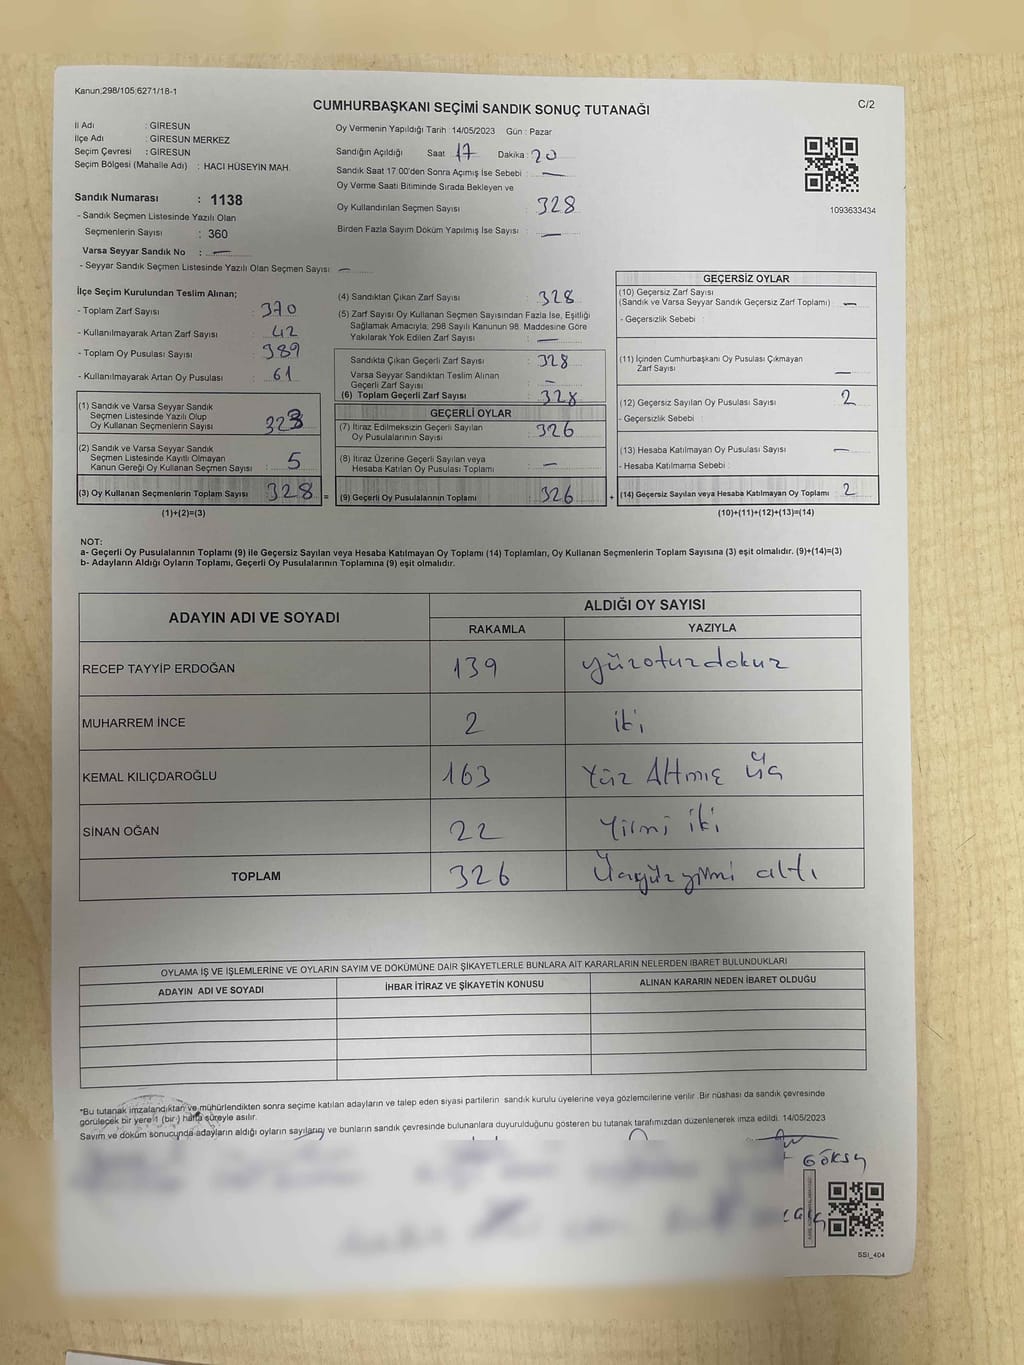 Kanun:298/105;6271/18-1
CUMHURBAŞKANI SEÇİMİ SANDIK SONUÇ TUTANAĞI
C/2
İl Adı : GİRESUN
İlçe Adı : GİRESUN MERKEZ
Seçim Çevresi : GİRESUN
Seçim Bölgesi (Mahalle Adı) : HACI HÜSEYİN MAH.
Sandık Numarası : 1138
- Sandık Seçmen Listesinde Yazılı Olan
Seçmenlerin Sayısı : 360
Varsa Seyyar Sandık No : —
- Seyyar Sandık Seçmen Listesinde Yazılı Olan Seçmen Sayısı: —
Oy Vermenin Yapıldığı Tarih : 14/05/2023 Gün : Pazar
Sandığın Açıldığı Saat 17 Dakika : 20
Sandık Saat 17:00'den Sonra Açımış İse Sebebi : —
Oy Verme Saati Bitiminde Sırada Bekleyen ve
Oy Kullandırılan Seçmen Sayısı : 328
Birden Fazla Sayım Döküm Yapılmış İse Sayısı : —
1093633434
İlçe Seçim Kurulundan Teslim Alınan;
- Toplam Zarf Sayısı : 370
- Kullanılmayarak Artan Zarf Sayısı : 42
- Toplam Oy Pusulası Sayısı : 389
- Kullanılmayarak Artan Oy Pusulası : 61
(1) Sandık ve Varsa Seyyar Sandık
Seçmen Listesinde Yazılı Olup
Oy Kullanan Seçmenlerin Sayısı : 323
(2) Sandık ve Varsa Seyyar Sandık
Seçmen Listesinde Kayıtlı Olmayan
Kanun Gereği Oy Kullanan Seçmen Sayısı : 5
(3) Oy Kullanan Seçmenlerin Toplam Sayısı : 328 =
(1)+(2)=(3)
(4) Sandıktan Çıkan Zarf Sayısı : 328
(5) Zarf Sayısı Oy Kullanan Seçmen Sayısından Fazla İse, Eşitliği
Sağlamak Amacıyla; 298 Sayılı Kanunun 98. Maddesine Göre
Yakılarak Yok Edilen Zarf Sayısı : —
Sandıkta Çıkan Geçerli Zarf Sayısı : 328
Varsa Seyyar Sandıktan Teslim Alınan
Geçerli Zarf Sayısı : —
(6) Toplam Geçerli Zarf Sayısı : 328
GEÇERLİ OYLAR
(7) İtiraz Edilmeksizin Geçerli Sayılan
Oy Pusulasının Sayısı : 326
(8) İtiraz Üzerine Geçerli Sayılan veya
Hesaba Katılan Oy Pusulası Toplamı : —
(9) Geçerli Oy Pusulalarının Toplamı : 326 +
GEÇERSİZ OYLAR
(10) Geçersiz Zarf Sayısı
(Sandık ve Varsa Seyyar Sandık Geçersiz Zarf Toplamı) : —
- Geçersizlik Sebebi :
(11) İçinden Cumhurbaşkanı Oy Pusulası Çıkmayan
Zarf Sayısı : —
(12) Geçersiz Sayılan Oy Pusulası Sayısı : 2
- Geçersizlik Sebebi :
(13) Hesaba Katılmayan Oy Pusulası Sayısı : —
- Hesaba Katılmama Sebebi :
(14) Geçersiz Sayılan veya Hesaba Katılmayan Oy Toplamı : 2
(10)+(11)+(12)+(13)=(14)
NOT:
a- Geçerli Oy Pusulalarının Toplamı (9) ile Geçersiz Sayılan veya Hesaba Katılmayan Oy Toplamı (14) Toplamları, Oy Kullanan Seçmenlerin Toplam Sayısına (3) eşit olmalıdır. (9)+(14)=(3)
b- Adayların Aldığı Oyların Toplamı, Geçerli Oy Pusulalarının Toplamına (9) eşit olmalıdır.
ADAYIN ADI VE SOYADI
ALDIĞI OY SAYISI
RAKAMLA YAZIYLA
RECEP TAYYİP ERDOĞAN 139 yüzotuzdokuz
MUHARREM İNCE 2 iki
KEMAL KILIÇDAROĞLU 163 Yüz Altmış üç
SİNAN OĞAN 22 Yirmi iki
TOPLAM 326 Üçyüzyirmi altı
OYLAMA İŞ VE İŞLEMLERİNE VE OYLARIN SAYIM VE DÖKÜMÜNE DAİR ŞİKAYETLERLE BUNLARA AİT KARARLARIN NELERDEN İBARET BULUNDUKLARI
ADAYIN ADI VE SOYADI İHBAR İTİRAZ VE ŞİKAYETİN KONUSU ALINAN KARARIN NEDEN İBARET OLDUĞU
*Bu tutanak imzalandıktan ve mühürlendikten sonra seçime katılan adayların ve talep eden siyasi partilerin sandık kurulu üyelerine veya gözlemcilerine verilir .Bir nüshası da sandık çevresinde
görülecek bir yere 1 (bir ) hafta süreyle asılır.
Sayım ve döküm sonucunda adayların aldığı oyların sayılarını ve bunların sandık çevresinde bulunanlara duyurulduğunu gösteren bu tutanak tarafımızdan düzenlenerek imza edildi. 14/05/2023
SSI_404